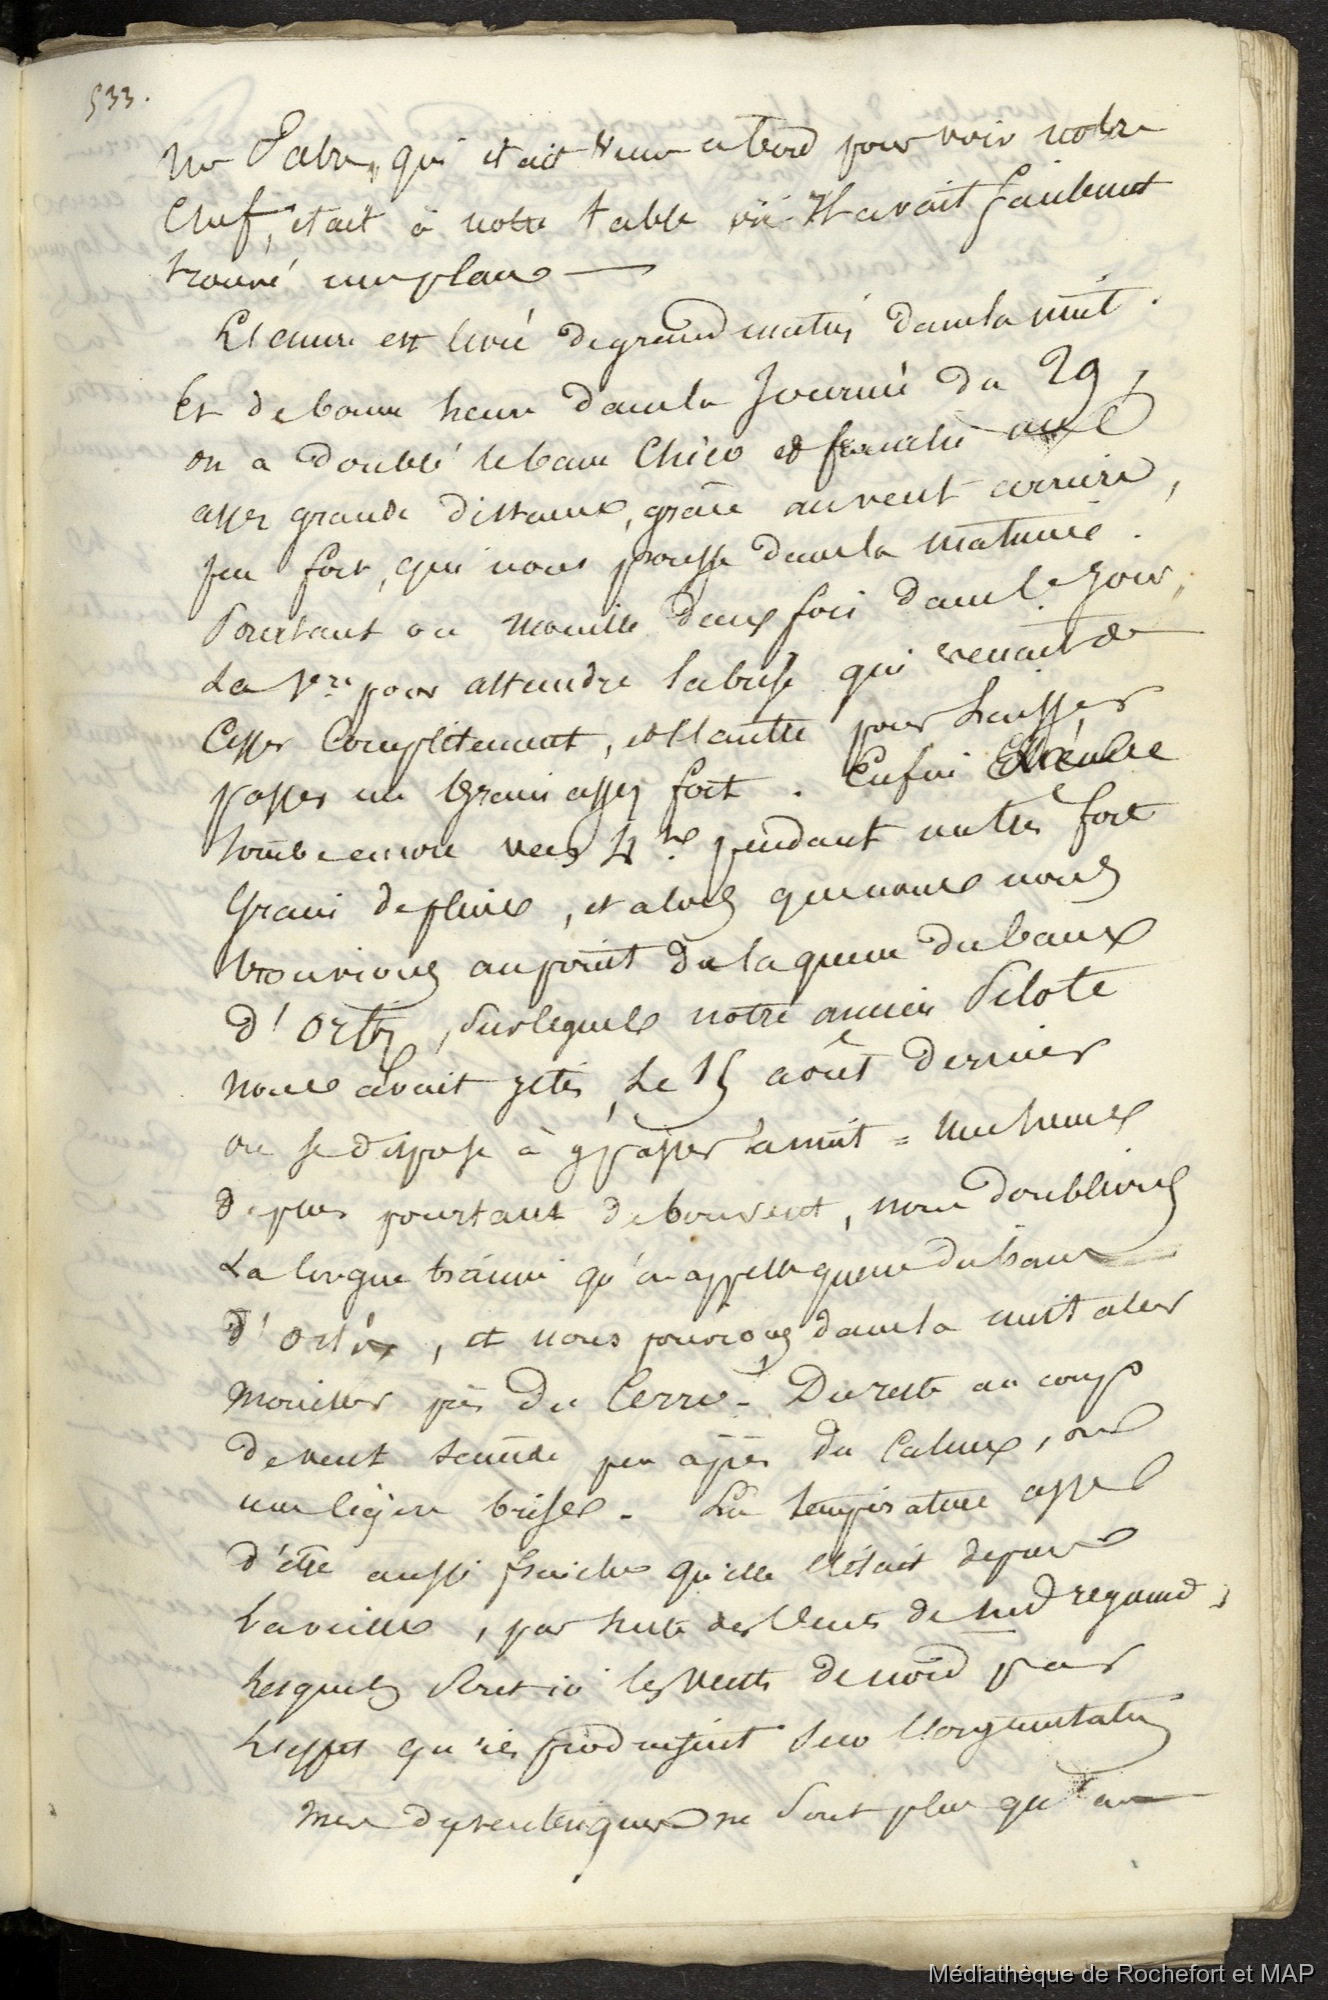 533.
Mr Fabre, qui était venu a bord pour voir notre
Chef, était à notre table où il avait facilement
trouvé une place —
L'ancre est levée de grand matin dans la nuit.
Et de bonne heure dans la journée du 29,
on a doublé le banc Chico et franchi une
assez grande distance, grâce au vent arrière,
peu fort, qui nous pousse dans la matinée.
Pourtant on mouille deux fois dans le jour,
La 1ère pour attendre la brise qui venait de
Cesser Complètement, et l'autre pour laisser
passer un Grain assez fort. Enfin l'ancre
tombe encore vers 4 h. pendant un très fort
Grain de pluie, et alors que nous nous
trouvions au point de la queue du banc
d'Ortiz, sur lequel notre ancien Pilote
nous avait jetés, Le 15 août dernier
on se dispose à y passer la nuit = une heure
de plus pourtant de bon vent, nous doublions
La longue trainée qu'on appelle queue du banc
d'Ortiz, et nous pouvions dans la nuit aller
Mouiller près du Cerro - Du reste au coup
de vent succède peu après du Calme, ou
une légère brise. La température cesse
d'être aussi fraiche qu'elle l'était depuis
la veille, par suite des Vents de sud régnant,
lesquels sont ici les vents de nord par
l'effet qu'ils produisent sur l'organisation
Mes dysentériques ne sont plus qu'au
Médiathèque de Rochefort et MAP